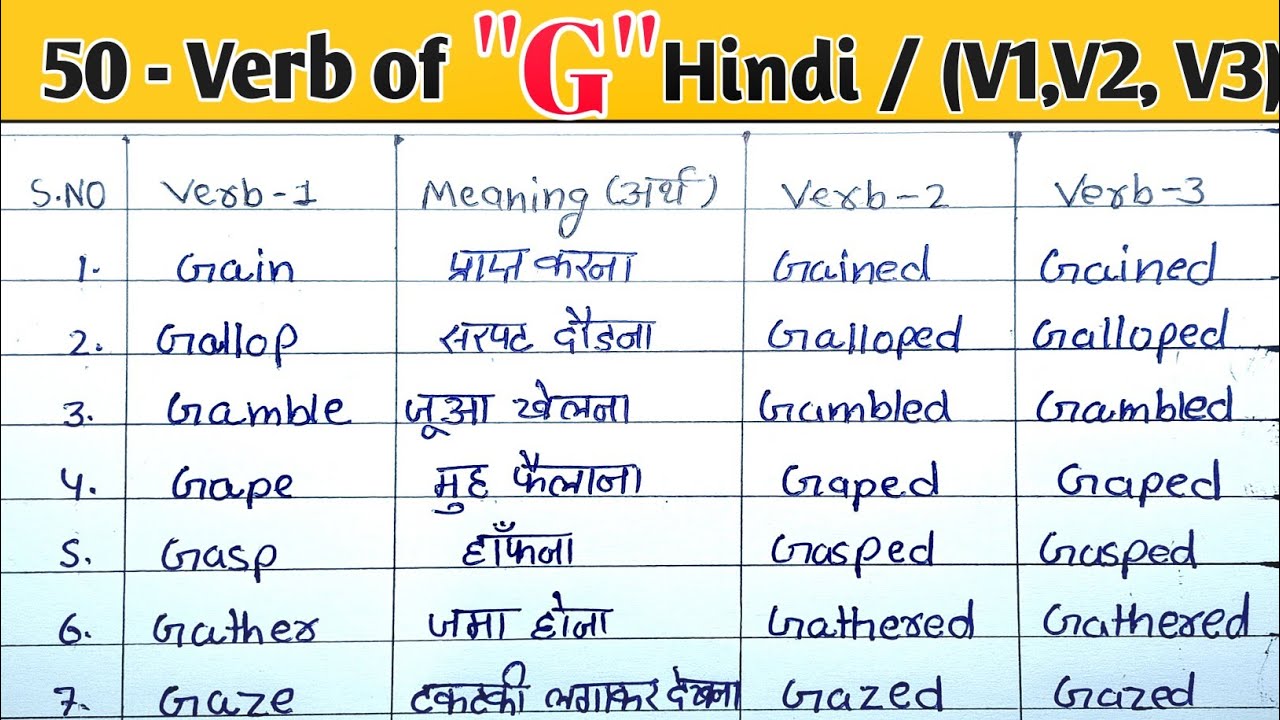 50 - Verb of "G" Hindi / (V1,V2, V3)
S.NO Verb-1 Meaning (अर्थ) Verb-2 Verb-3
1. Gain प्राप्त करना Gained Gained
2. Gallop सरपट दौडना Galloped Galloped
3. Gamble जूआ खेलना Gambled Gambled
4. Gape मुह फैलाना Gaped Gaped
5. Gasp हाँफना Gasped Gasped
6. Gather जमा होना Gathered Gathered
7. Gaze टकटकी लगाकर देखना Gazed Gazed